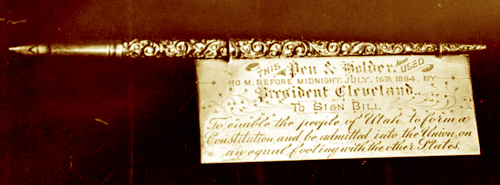 THIS Pen & Holder, was USED
10 M. BEFORE MIDNIGHT, JULY. 16TH 1894, BY
President Cleveland,
To Sign Bill
To enable the people of Utah to form a
Constitution and be admitted into the Union, on
an equal footing with the other States.